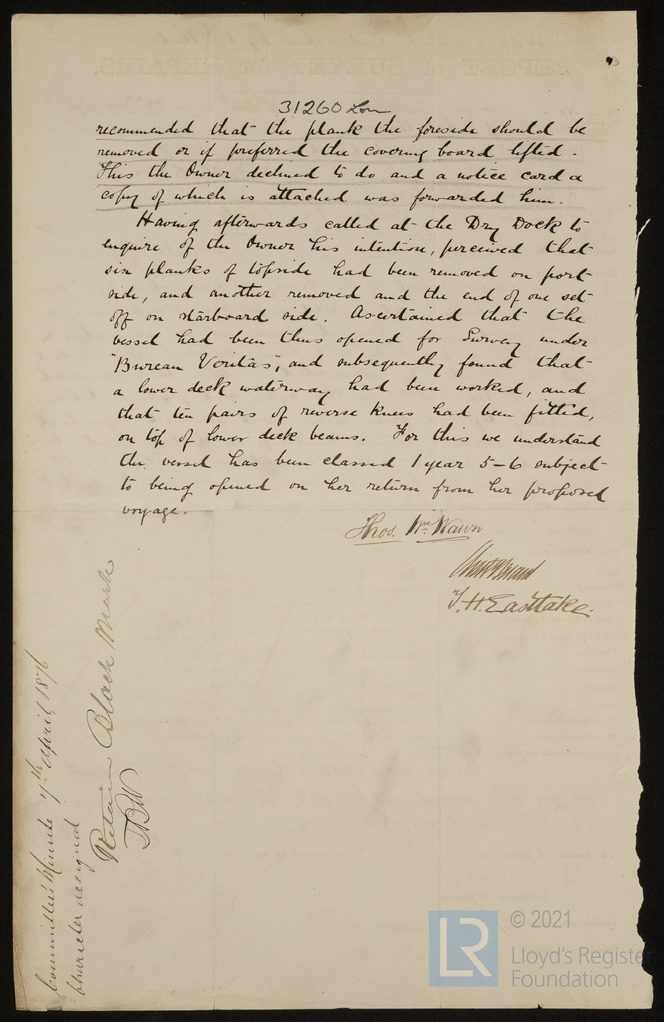 31260 Lon
recommended that the plank the foreside should be
removed or if preferred the covering board lifted.
This the Owner declined to do and a notice card a
copy of which is attached was forwarded him.
Having afterwards called at the Dry Dock to
enquire of the Owner his intention, perceived that
six planks of topside had been removed on port
side, and another removed and the end of one set
off on starboard side. Ascertained that the
vessel had been thus opened for Survey under
"Bureau Veritas", and subsequently found that
a lower deck waterway had been worked, and
that ten pairs of reverse knees had been fitted,
on top of lower deck beams. For this we understand
the vessel has been classed 1 year 5-6 subject
to being opened on her return from her proposed
voyage.
Thos. Wm. Wawn
T. H. Eastlake.
Committee's Minute 7th April 1876
Character assigned
Retain Black Mark
© 2021
LR
Lloyd's Register
Foundation